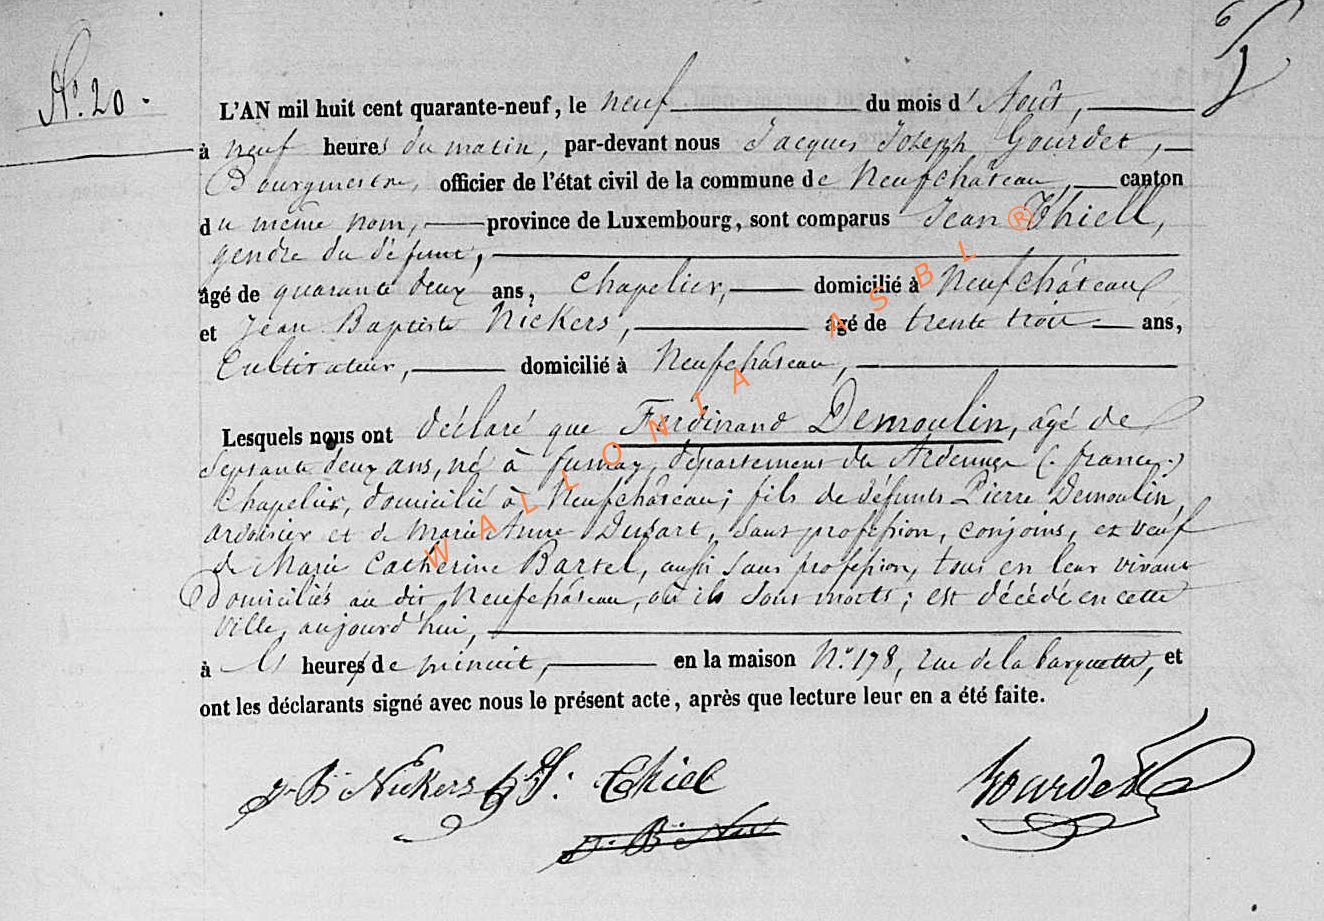 N° 20.
L'AN mil huit cent quarante-neuf, le neuf du mois d'Août,
à neuf heures du matin, par-devant nous Jacques Joseph Gourdet,
Bourgmestre, officier de l'état civil de la commune de Neufchâteau, canton
du même nom, province de Luxembourg, sont comparus Jean Thiell,
gendre du défunt,
âgé de quarante deux ans, Chapelier, domicilié à Neufchâteau
et Jean Baptiste Nickers, âgé de trente trois ans,
Cultivateur, domicilié à Neufchâteau,
Lesquels nous ont déclaré que Ferdinand Demoulin, âgé de
septante deux ans, né à fumay, département des Ardennes (france)
Chapelier, domicilié à Neufchâteau; fils de défunts Pierre Demoulin,
ardoisier et de Marie Anne Dusart, sans profession, conjoins, et veuf
de Marie Catherine Bartel, aussi sans profession, tous en leur vivant
Domiciliés au dit Neufchâteau, où ils sont morts; est décédé en cette
ville, aujourd'hui,
à heures de minuit, en la maison N° 178, rue de la barquette, et
ont les déclarants signé avec nous le présent acte, après que lecture leur en a été faite.
J-B Nickers J: Thiel Gourdet
J. B
WALLONIA ASBL ®